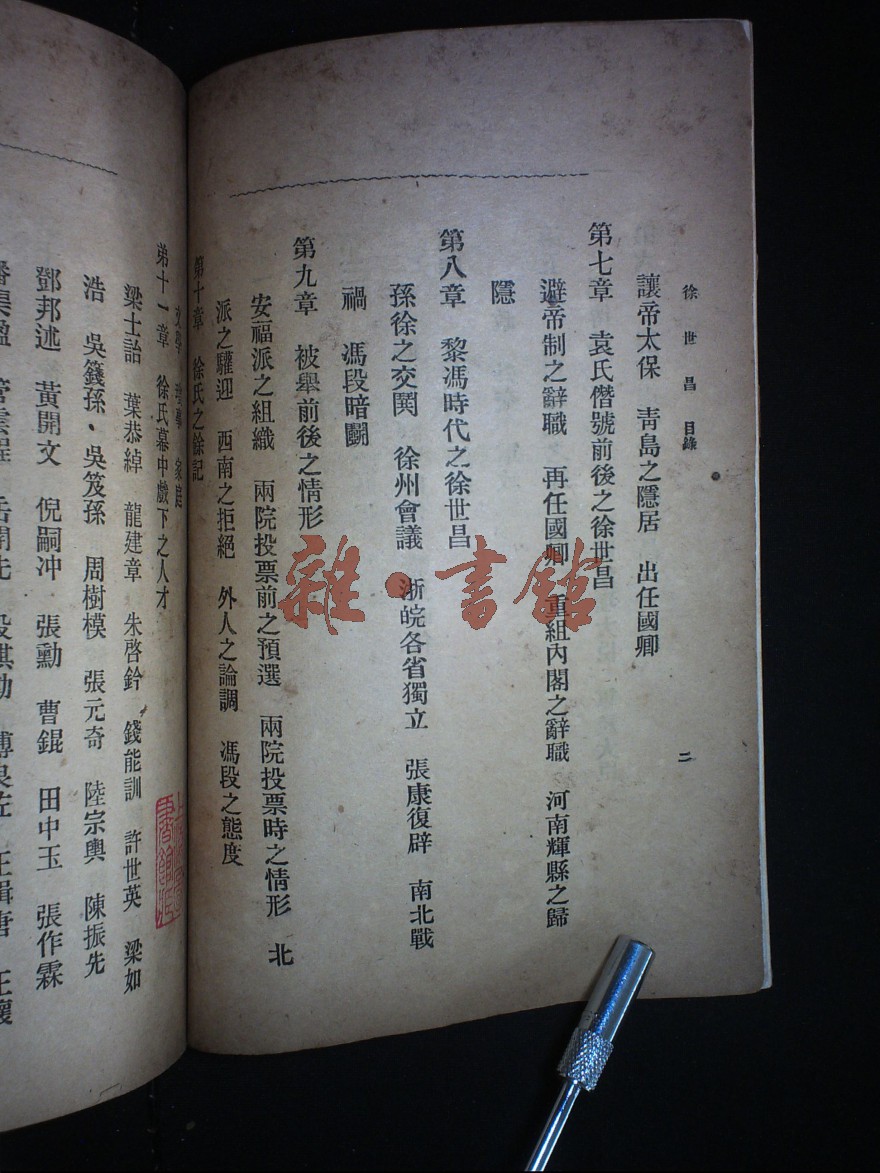 徐世昌 目錄
二
讓帝太保 靑島之隱居 出任國卿
第七章 袁氏僭號前後之徐世昌
避帝制之辭職 再任國卿 重組內閣之辭職 河南輝縣之歸
隱
第八章 黎馮時代之徐世昌
孫徐之交閧 徐州會議 浙皖各省獨立 張康復辟 南北戰
禍 馮段暗鬭
第九章 被舉前後之情形
安福派之組織 兩院投票前之預選 兩院投票時之情形 北
派之驩迎 西南之拒絕 外人之論調 馮段之態度
第十章 徐氏之餘記
文學 理學 家庭
弟十一章 徐氏幕中戲下之人才
梁士詒 葉恭綽 龍建章 朱啓鈐 錢能訓 許世英 梁如
浩 吳籛孫 吳笈孫 周樹模 張元奇 陸宗輿 陳振先
鄧邦述 黃開文 倪嗣冲 張勳 曹錕 田中玉 張作霖
雜·書館